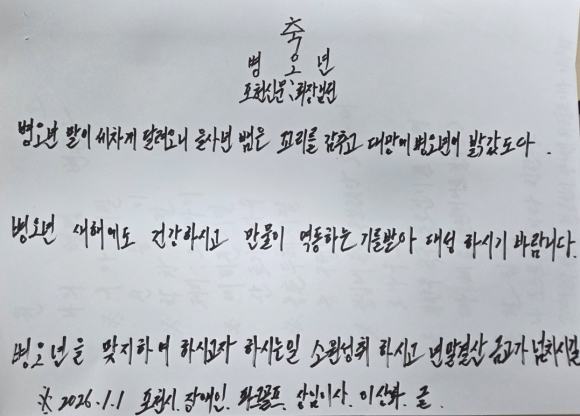 축
병 오 년
포천신문; 회장님전
병오년 말이 세차게 달려오니 을사년 뱀은 꼬리를 감추고 대망에 병오년이 밝았도다 .
병오년 새해에도 건강하시고 만물이 역동하는 기를받아 대성 하시기 바랍니다.
병오년을 맞지하여 하시고자 하시는일 소원성취 하시고 년말결산 금고가 넘치시길
※ 2026.1.1 포천시. 장애인. 파크골프. 상임이사. 이상화 글.